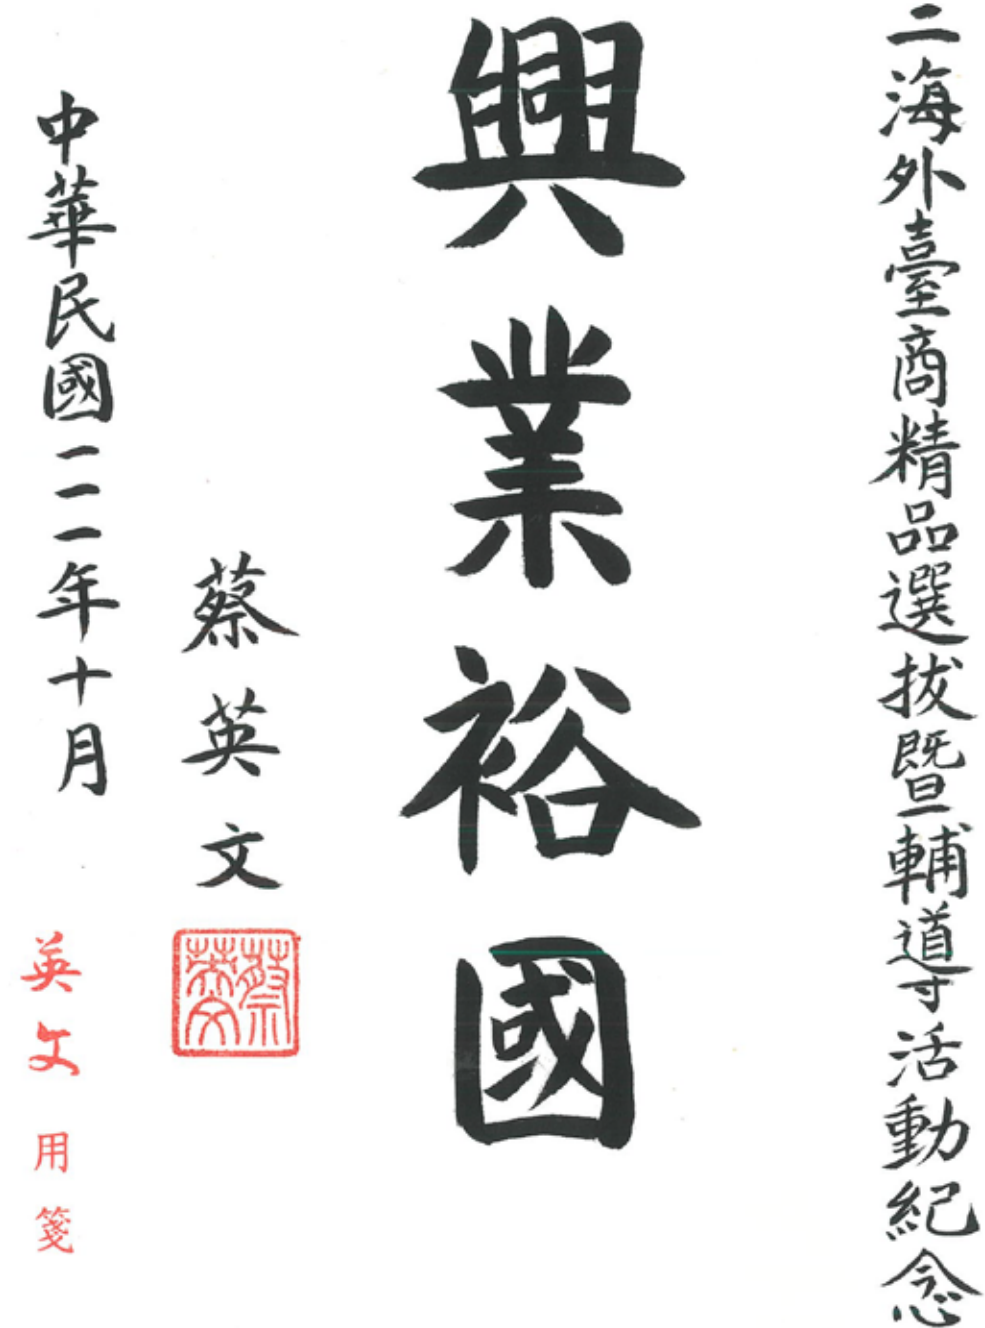 二海外臺商精品選拔暨輔導活動紀念
興業裕國
蔡英文
蔡英文
中華民國一一一年十月
英文用箋